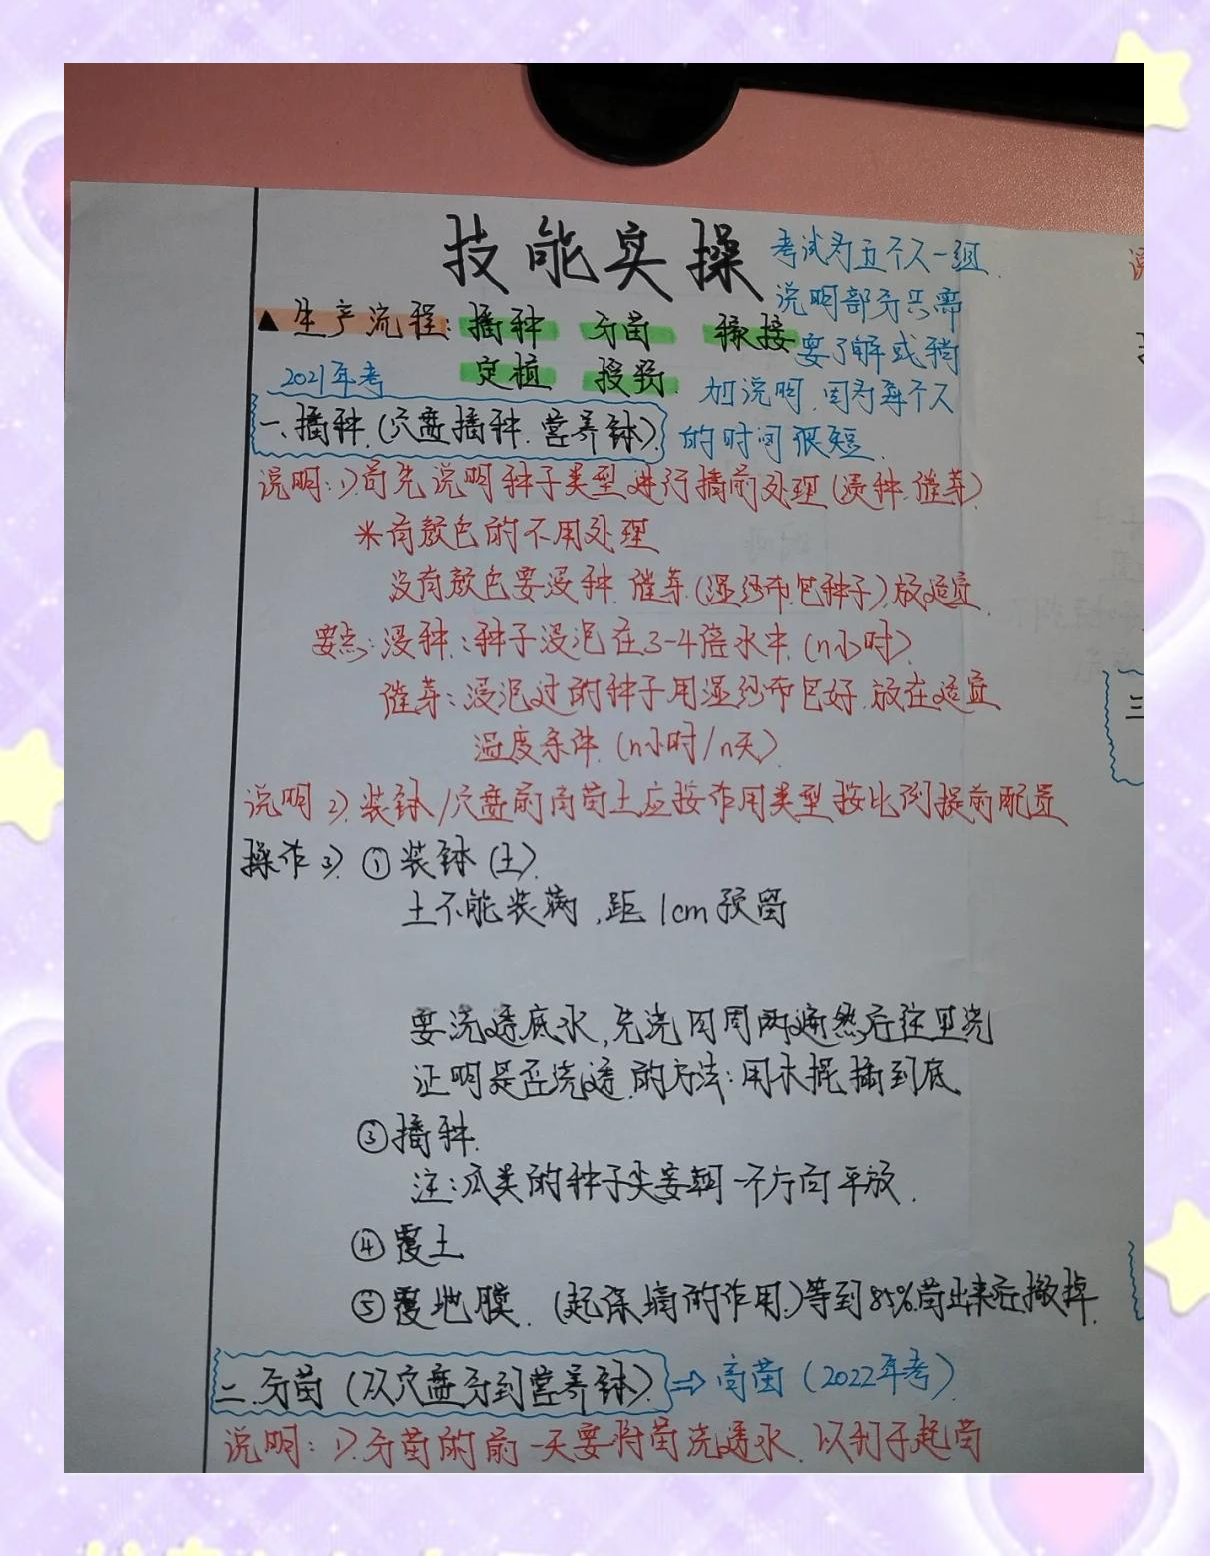 技能实操
考试为五个人一组
说明部分只需
要了解或稍
加说明.因为每个人
的时间很短.
▲生产流程:播种 分苗 嫁接
定植 授粉
2021年考
一、播种.(穴盘播种.营养钵)
说明:1).首先说明种子类型进行播前处理(浸种.催芽)
*有颜色的不用处理
没有颜色要浸种.催芽.(湿纱布包种子).放适宜.
要点:浸种:种子浸泡在3-4倍水中.(n小时).
催芽:浸泡过的种子用湿纱布包好.放在适宜
温度条件.(n小时/n天).
说明2).装钵/穴盘前育苗土应按作用类型按比例提前配置
操作3).①装钵(土).
土不能装满,距1cm预留
要浇透底水,先浇四周两遍然后往里浇
证明是否浇透.的方法:用木棍插到底
③播种.
注:瓜类的种子尖要朝一个方向平放.
④覆土
⑤覆地膜.(起保墒的作用.)等到85%苗出来后撤掉.
二.分苗(从穴盘分到营养钵).⇒育苗(2022年考).
说明:1).分苗的前一天要将苗浇透水.以利于起苗
三